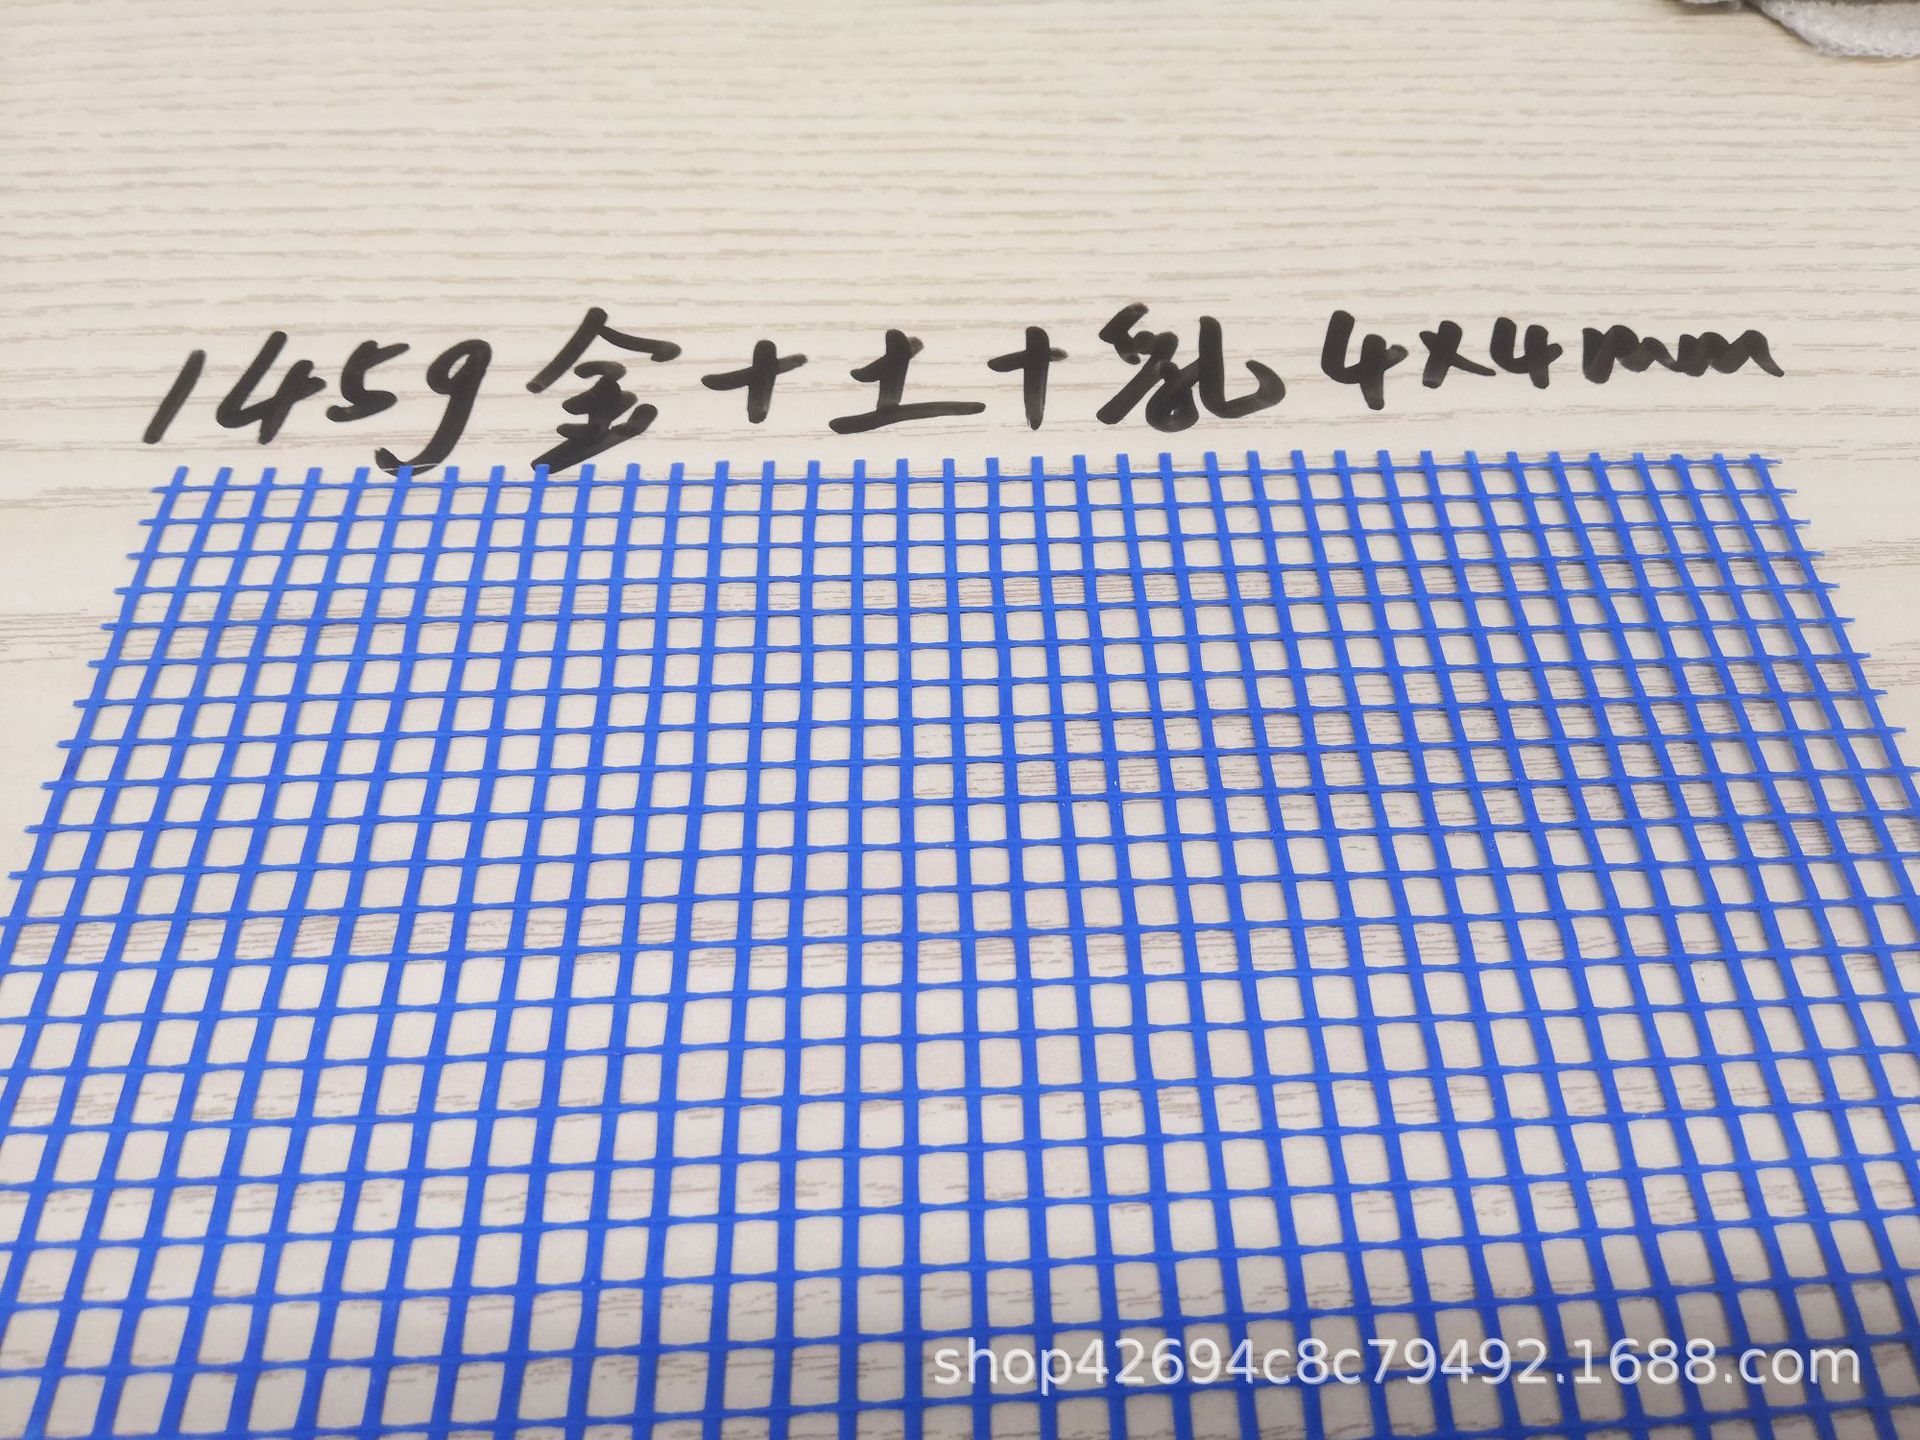 145g金+土+乳 4×4mm
shop42694c8c79492.1688.com